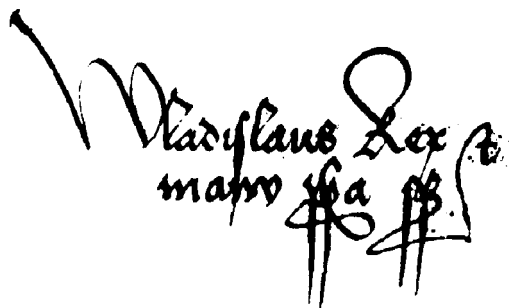 Wladislaus Rex
manu ppa